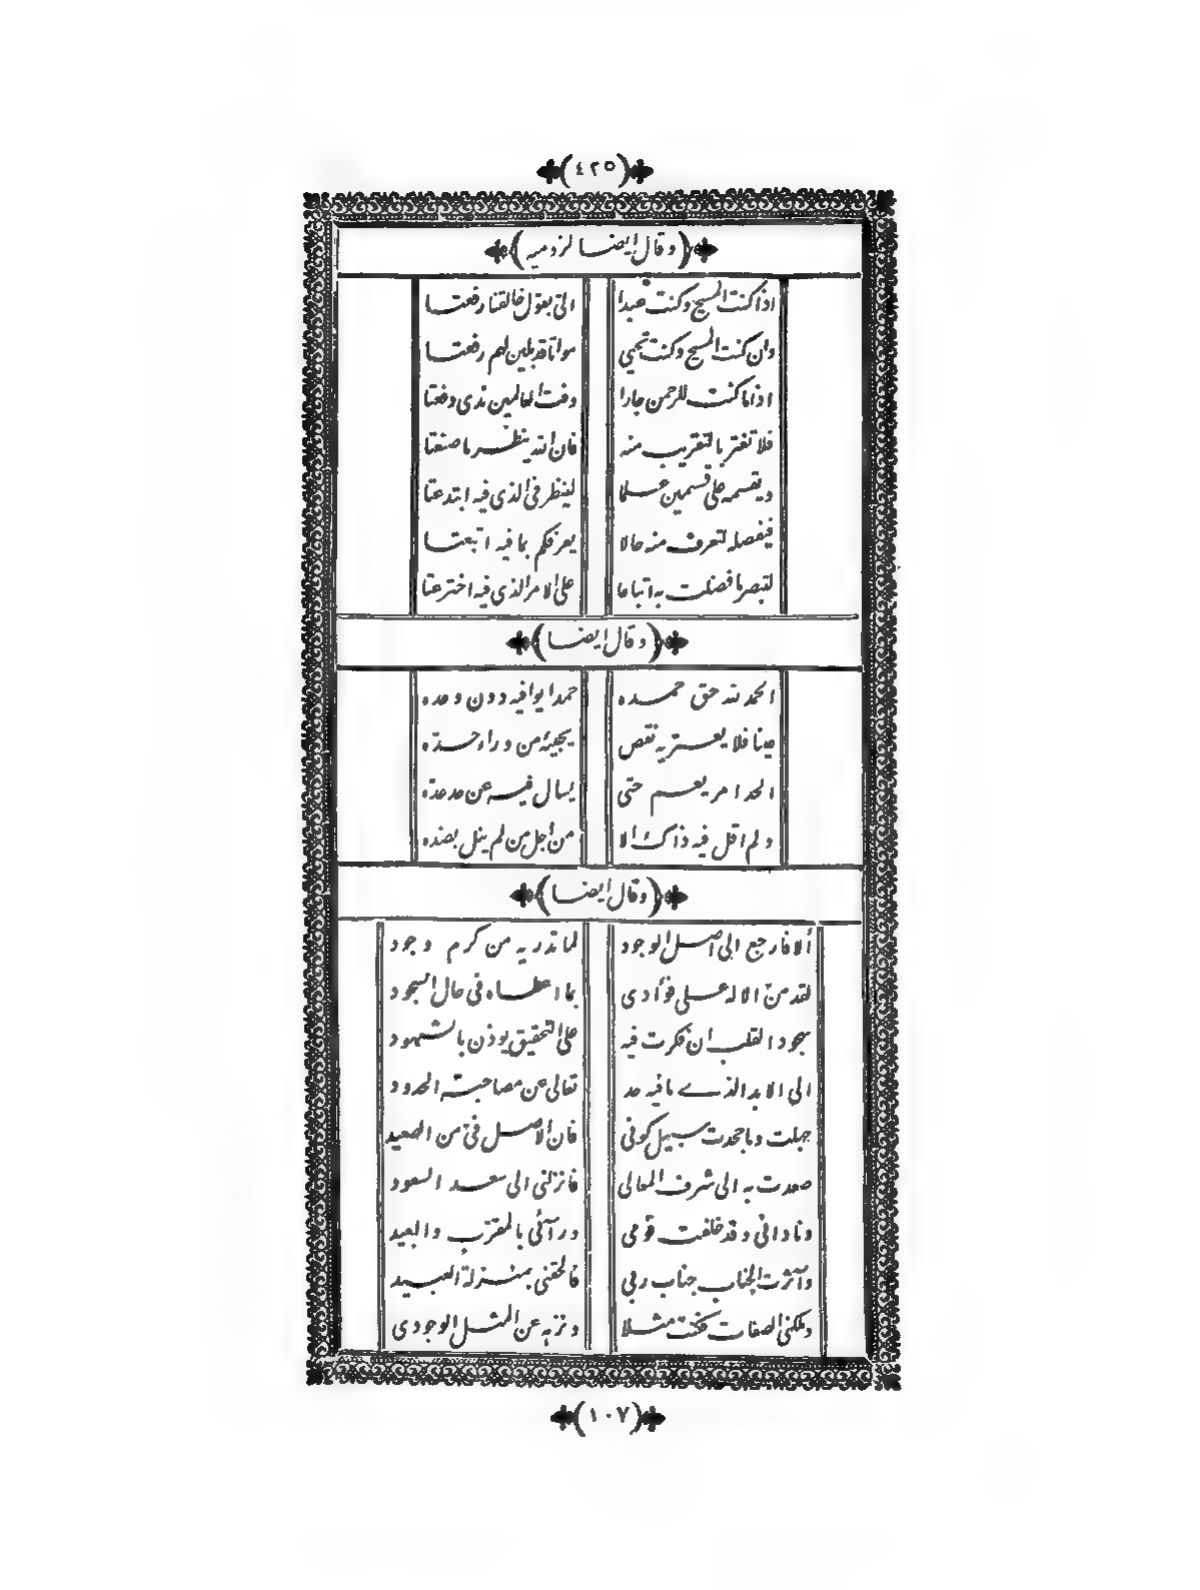 (٤٢٥)
(وقال ايضا لزوميه)
اذا كنت المسيح وكنت عبدا الى بقول خالقنا رفعتا
وان كنت المسيح وكنت تحيي مواتا قد بلين لهم رفعتا
اذا ما كنت للرحمن جارا وقت العالمين ندى وقعتا
فلا تغتر بالتقريب منه فان الله ينظر ما صنعتا
ويقسمه على قسمين علما لينظر في الذي فيه ابتدعتا
فيفصله لتعرف منه حالا يعرفكم بما فيه اتبعتا
لتبصر ما فضلت به اتباعا على الامر الذي فيه اخترعتا
(وقال ايضا)
الحمد لله حق حمده حمدا يوافيه دون وعده
عينا فلا يعتريه نقص يجيئه من وراء حده
الحد امر يعم حتى يسال فيه عن حد حده
ولم اقل فيه ذاك الا من أجل من لم ينل بضده
(وقال ايضا)
ألا فارجع الى اصل الوجود لما تدريه من كرم وجود
لقد من الاله على فؤادى بما اعطاه في حال السجود
سجود القلب ان فكرت فيه على التحقيق يوذن بالشهود
الى الابد الذى ما فيه حد تعالى عن مصاحبة الحدود
جهلت وما جحدت سبيل كونى فان الاصل في من الصعيد
صعدت به الى شرف المعالى فانزلنى الى سعد السعود
ونادانى وقد خلفت قومى ورآئى بالمقرب والبعيد
وآثرت الجناب جناب ربي فألحقنى بمنزلة العبيد
وملكنى الصفات فكنت مثلا ونزه عن المثل الوجودى
(١٠٧)